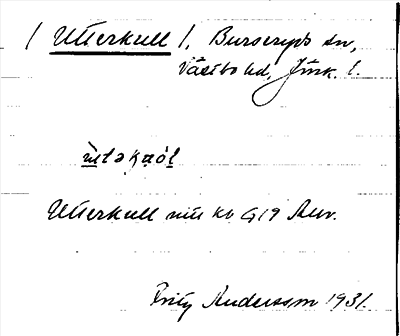 ( Utterkull ), Burseryds sn,
Västbo hd, Jönk. l.
Utterkull mtl kb G19 Auv.
Fritz Andersson 1931.